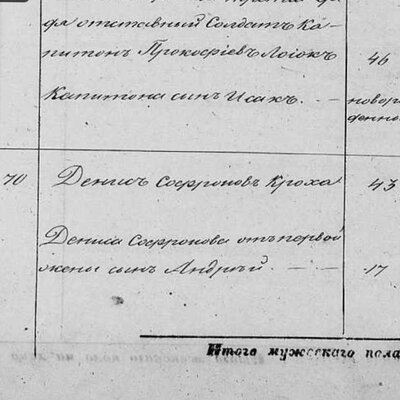 фа отставный Солдатъ Ка-
питонъ Прокофіевъ Лоіокъ 46
Капитона сынъ Исакъ. — новорож
денно
70 Денисъ Софроновъ Кроха 43
Дениса Софронова отъ первой
жены сынъ Андрѣй. — — 17
Итого мужескаго пола